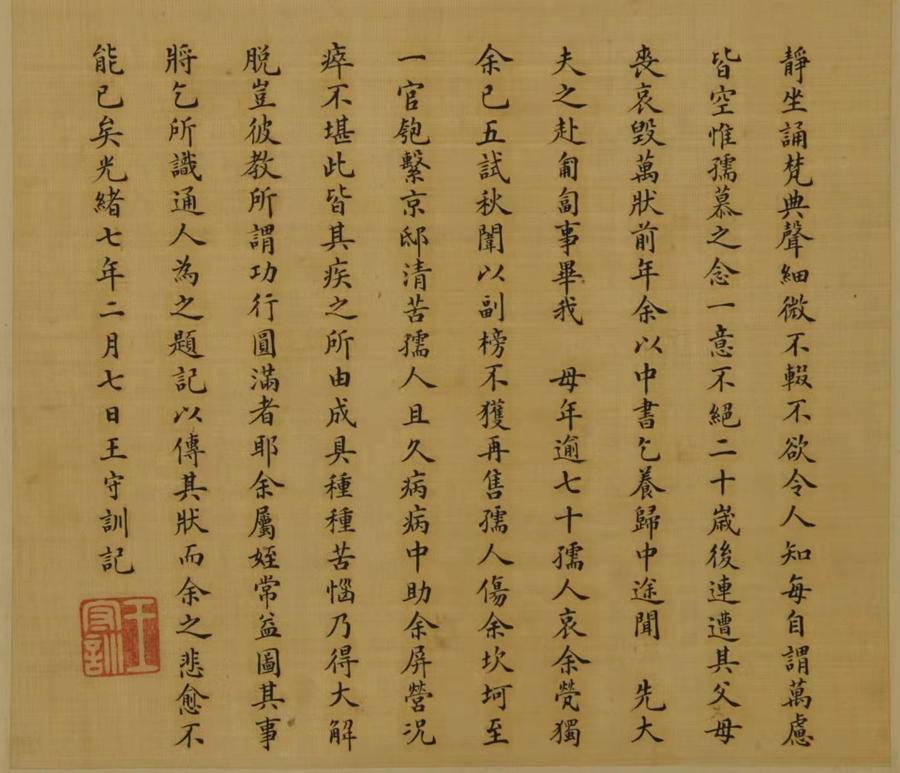 靜坐誦梵典聲細微不輟不欲令人知每自謂萬慮
皆空惟孺慕之念一意不絕二十歲後連遭其父母
喪哀毀萬狀前年余以中書乞養歸中途聞 先大
夫之赴匍匐事畢我 母年逾七十孺人哀余煢獨
余已五試秋闈以副榜不獲再售孺人傷余坎坷至
一官匏繫京邸清苦孺人且久病病中助余屏營況
瘁不堪此皆其疾之所由成具種種苦惱乃得大解
脫豈彼教所謂功行圓滿者耶余屬姪常益圖其事
將乞所識通人為之題記以傳其狀而余之悲愈不
能已矣光緒七年二月七日王守訓記
王守訓